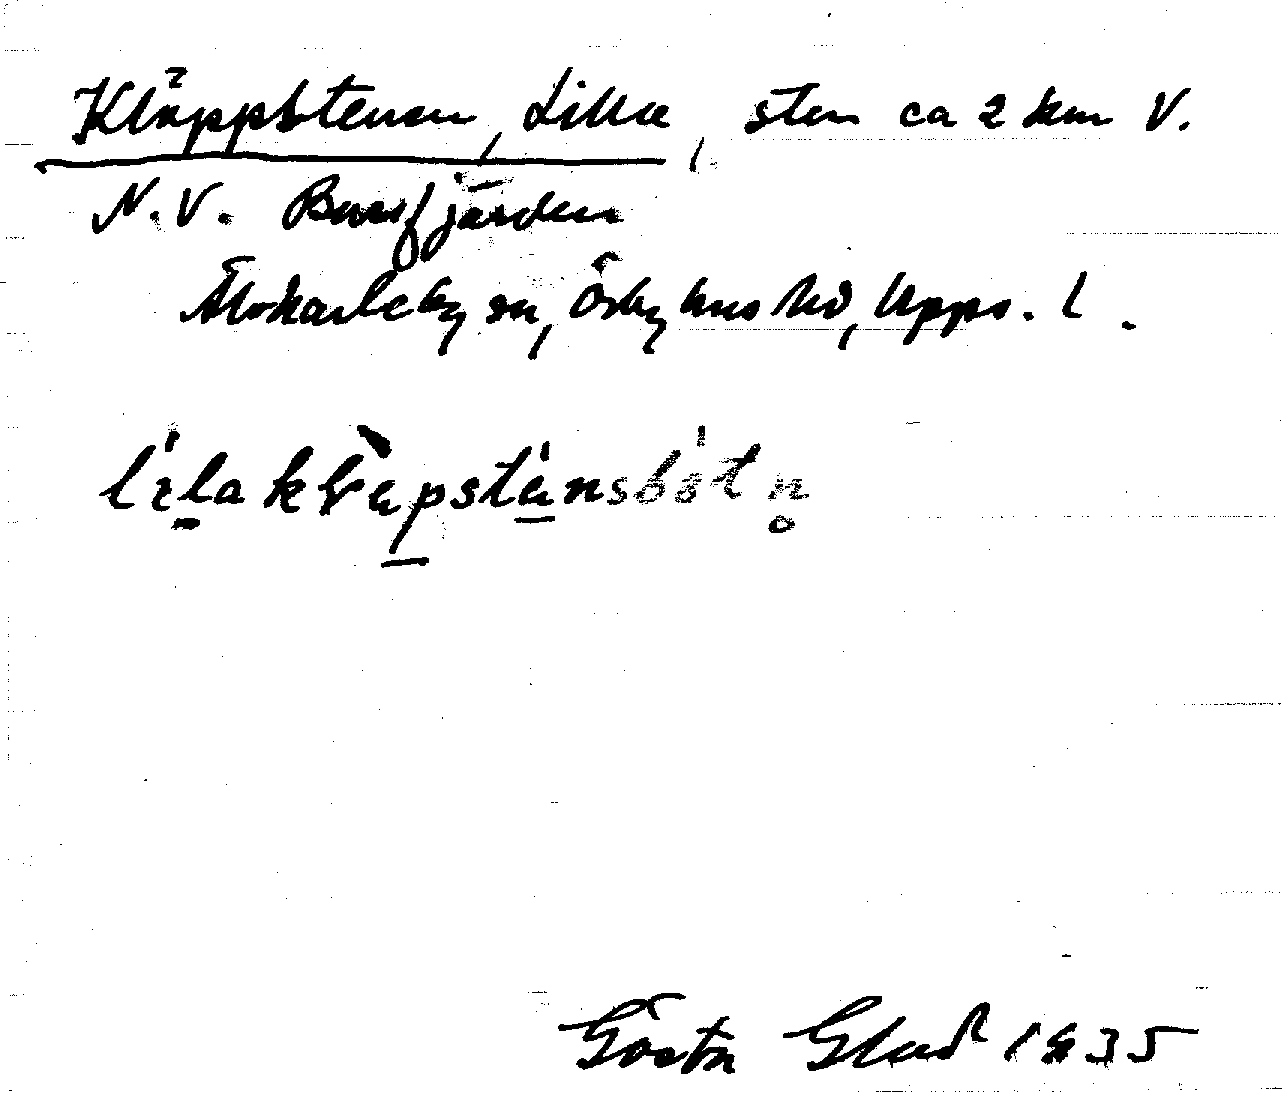 Kläppstenen, Lilla, sten ca 2 km V.
N.V. Bursfjärden
Älvkarleby sn, Örbyhus hd, Upps. l.
lílaklὲpsténsbótn̥
Gösta Glad 1935